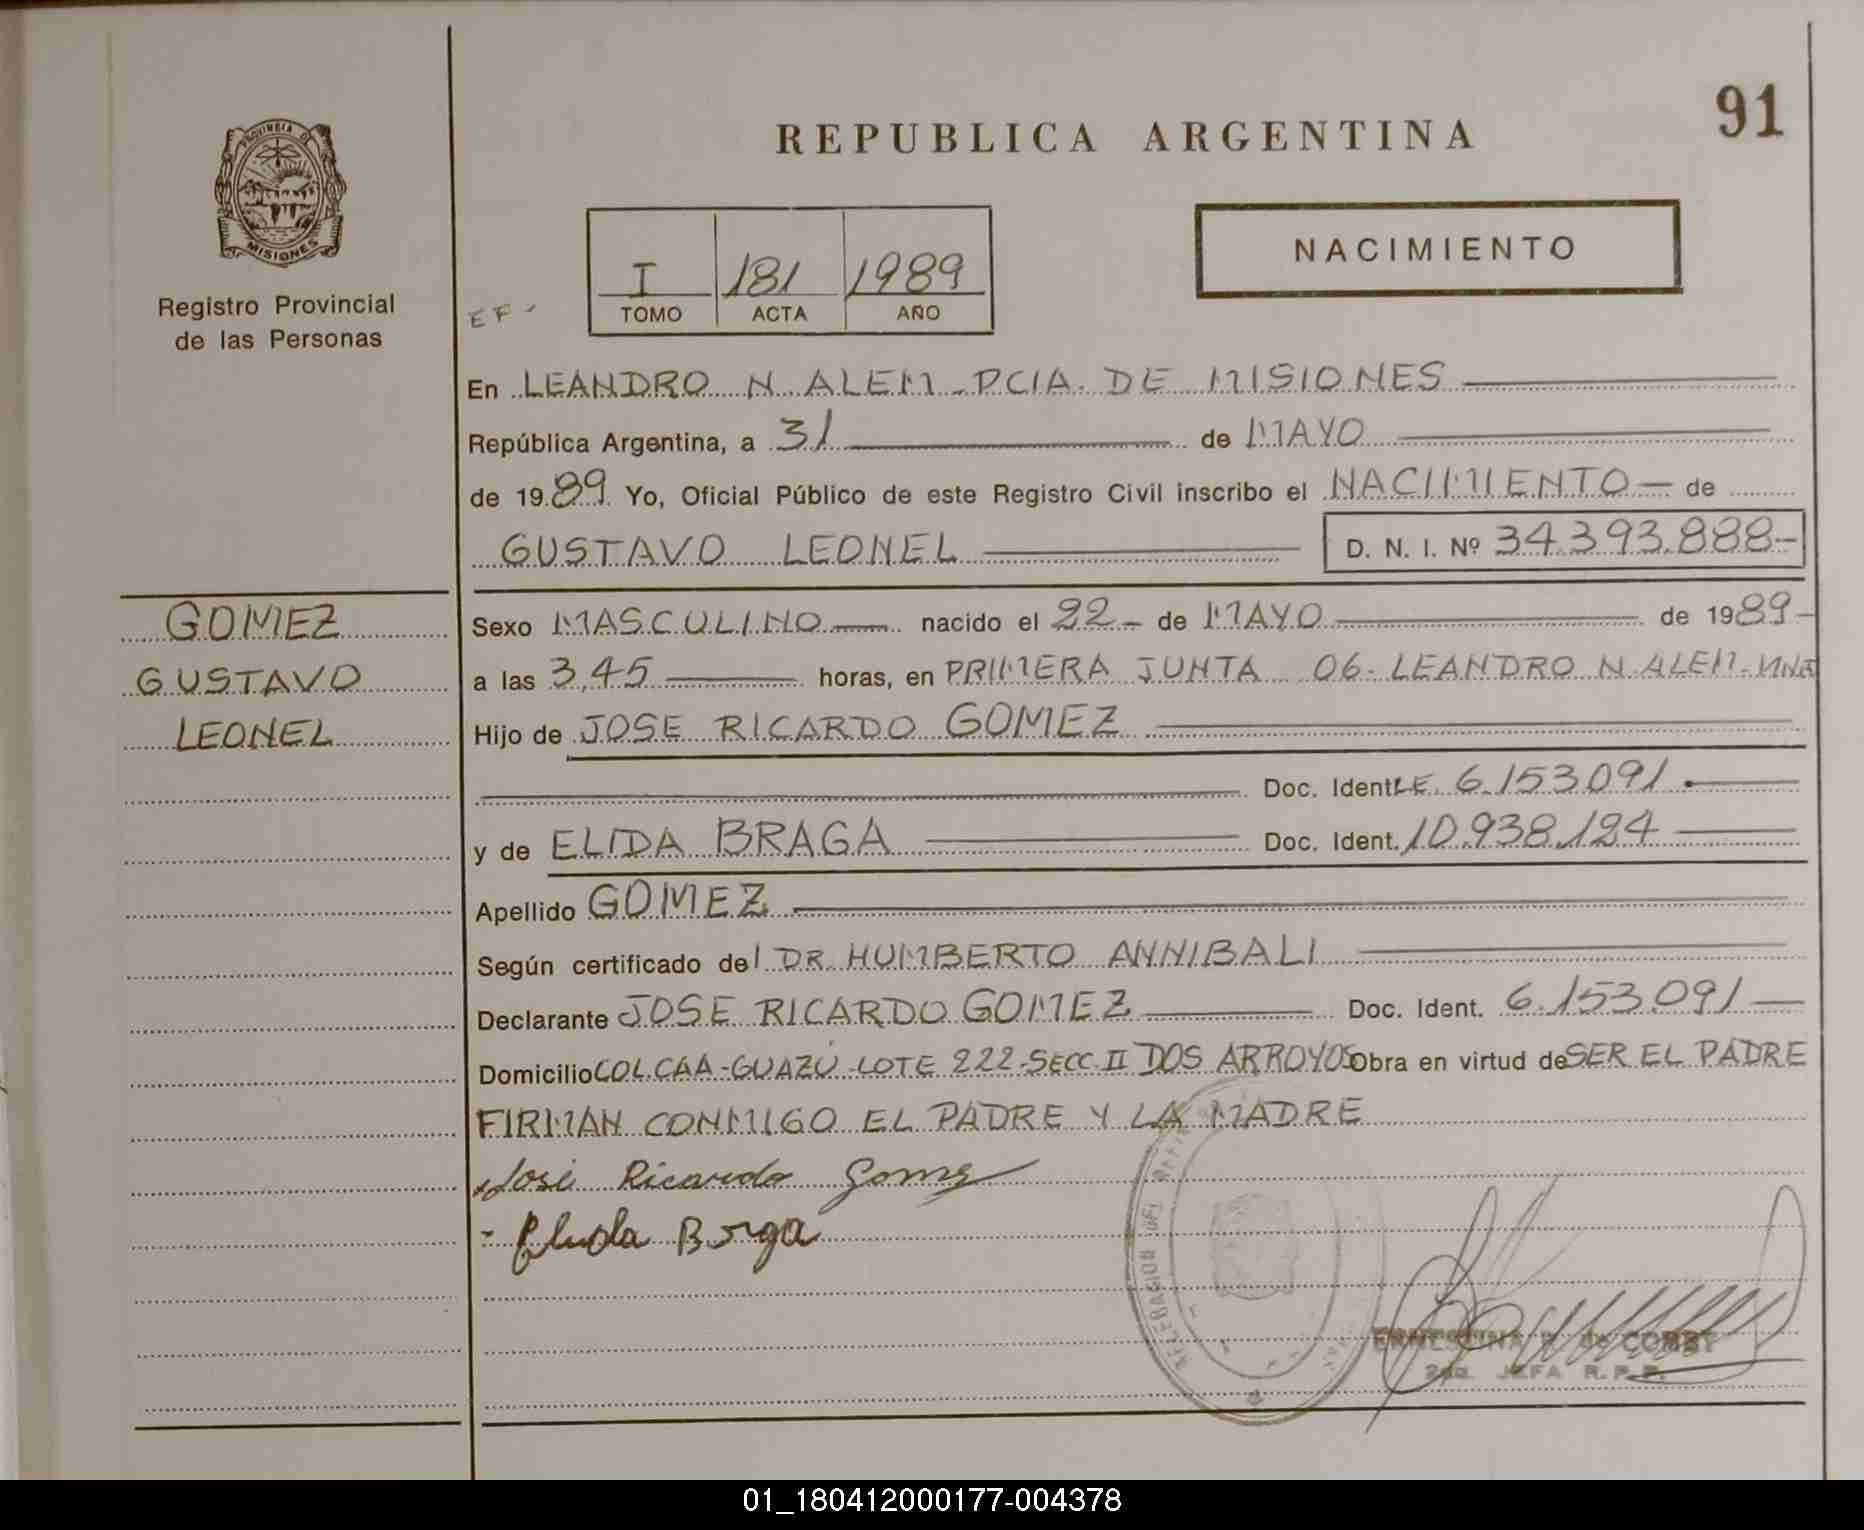 91
REPUBLICA ARGENTINA
PROVINCIA DE
MISIONES
Registro Provincial
de las Personas
NACIMIENTO
I 181 1989
TOMO ACTA AÑO
EF-
En LEANDRO N. ALEM - PCIA. DE MISIONES
República Argentina, a 31 de MAYO
de 1989 Yo, Oficial Público de este Registro Civil inscribo el NACIMIENTO - de
GUSTAVO LEONEL D. N. I. Nº 34.393.888-
GOMEZ
GUSTAVO
LEONEL
Sexo MASCULINO nacido el 22 - de MAYO de 1989-
a las 3,45 horas, en PRIMERA JUNTA 06 - LEANDRO N. ALEM -
Hijo de JOSE RICARDO GOMEZ
Doc. Ident. L.E. 6.153.091.
y de ELIDA BRAGA Doc. Ident. 10.938.124
Apellido GOMEZ
Según certificado del DR. HUMBERTO ANNIBALI
Declarante JOSE RICARDO GOMEZ Doc. Ident. 6.153.091
Domicilio COL. CAA-GUAZÚ - LOTE 222 - SECC. II DOS ARROYOS Obra en virtud de SER EL PADRE
FIRMAN CONMIGO EL PADRE Y LA MADRE
José Ricardo Gomez
- Elida Braga
ERNESTINA
2da. JEFA R. P. P.
01_180412000177-004378